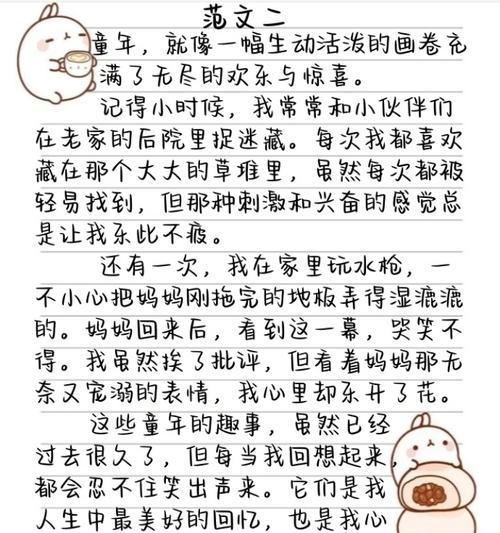 范文二
童年，就像一幅生动活泼的画卷充
满了无尽的欢乐与惊喜。
记得小时候，我常常和小伙伴们
在老家的后院里捉迷藏。每次我都喜欢
藏在那个大大的草堆里，虽然每次都被
轻易找到，但那种刺激和兴奋的感觉总
是让我乐此不疲。
还有一次，我在家里玩水枪，一
不小心把妈妈刚拖完的地板弄得湿漉漉
的。妈妈回来后，看到这一幕，哭笑不
得。我虽然挨了批评，但看着妈妈那无
奈又宠溺的表情，我心里却乐开了花。
这些童年的趣事，虽然已经
过去很久了，但每当我回想起来，
都会忍不住笑出声来。它们是我
人生中最美好的回忆，也是我心